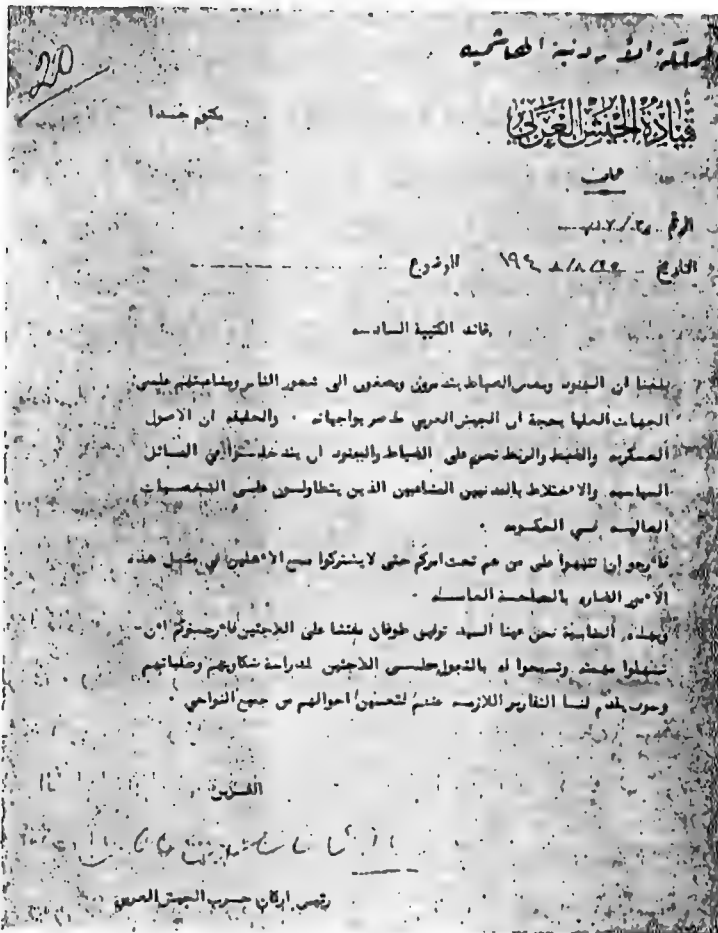 المملكة الأردنية الهاشمية
20
مكتوم جدا
قيادة الجيش العربي
عمان
الرقم
التاريخ الموضوع
قائد الكتيبة السادسه
بلغنا ان الجنود وبعض الضباط يتذمرون ويصغون الى شعور الناس ومشاغبتهم على
الجهات العليا بحجة ان الجيش العربي قصر بواجباته . والحقيقه ان الاصول
العسكريه والضبط والربط تحرم على الضباط والجنود ان يتدخلوا في المسائل
السياسيه والاختلاط بالمدنيين المشاغبين الذين يتطاولون على الشخصيات
العاليه في الحكومه .
فأرجو ان تنبهوا على من هم تحت امركم حتى لا يشتركوا مع الأهلين في مثل هذه
الأمور الضاره بالمصلحة العامه .
وبهذه المناسبة نحن عينا السيد توفيق طوقان مفتشا على اللاجئين فأرجوكم ان
تسهلوا مهمته وتسمحوا له بالتجول على اللاجئين لدراسة شكاويهم وطلباتهم
وسوف يقدم لنا التقارير اللازمه عنهم لتحسين احوالهم من جميع النواحي .
رئيس اركان حرب الجيش العربي